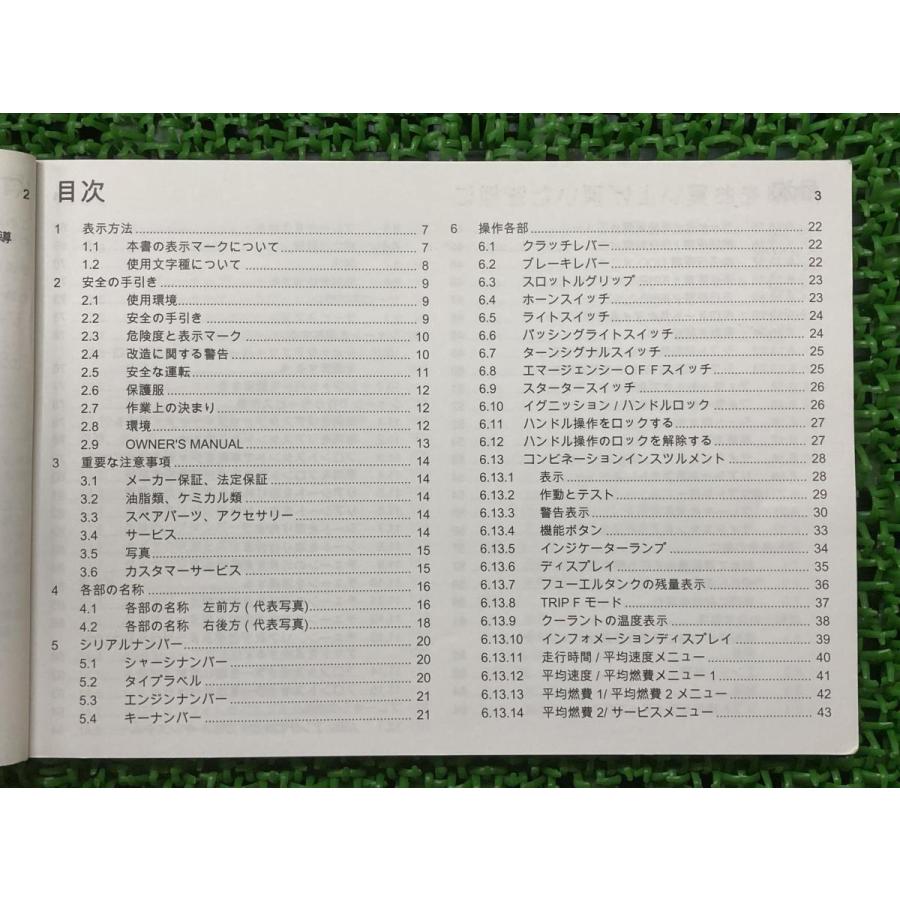 2
導
目次
3
1 表示方法 7
1.1 本書の表示マークについて 7
1.2 使用文字種について 8
2 安全の手引き 9
2.1 使用環境 9
2.2 安全の手引き 9
2.3 危険度と表示マーク 10
2.4 改造に関する警告 10
2.5 安全な運転 11
2.6 保護服 12
2.7 作業上の決まり 12
2.8 環境 12
2.9 OWNER'S MANUAL 13
3 重要な注意事項 14
3.1 メーカー保証、法定保証 14
3.2 油脂類、ケミカル類 14
3.3 スペアパーツ、アクセサリー 14
3.4 サービス 14
3.5 写真 15
3.6 カスタマーサービス 15
4 各部の名称 16
4.1 各部の名称 左前方 (代表写真) 16
4.2 各部の名称 右後方 (代表写真) 18
5 シリアルナンバー 20
5.1 シャーシナンバー 20
5.2 タイプラベル 20
5.3 エンジンナンバー 21
5.4 キーナンバー 21
6 操作各部 22
6.1 クラッチレバー 22
6.2 ブレーキレバー 22
6.3 スロットルグリップ 23
6.4 ホーンスイッチ 23
6.5 ライトスイッチ 24
6.6 パッシングライトスイッチ 24
6.7 ターンシグナルスイッチ 25
6.8 エマージェンシーOFFスイッチ 25
6.9 スタータースイッチ 26
6.10 イグニッション / ハンドルロック 26
6.11 ハンドル操作をロックする 27
6.12 ハンドル操作のロックを解除する 27
6.13 コンビネーションインスツルメント 28
6.13.1 表示 28
6.13.2 作動とテスト 29
6.13.3 警告表示 30
6.13.4 機能ボタン 33
6.13.5 インジケーターランプ 34
6.13.6 ディスプレイ 35
6.13.7 フューエルタンクの残量表示 36
6.13.8 TRIP F モード 37
6.13.9 クーラントの温度表示 38
6.13.10 インフォメーションディスプレイ 39
6.13.11 走行時間 / 平均速度メニュー 40
6.13.12 平均速度 / 平均燃費メニュー 1 41
6.13.13 平均燃費 1/ 平均燃費 2 メニュー 42
6.13.14 平均燃費 2/ サービスメニュー 43